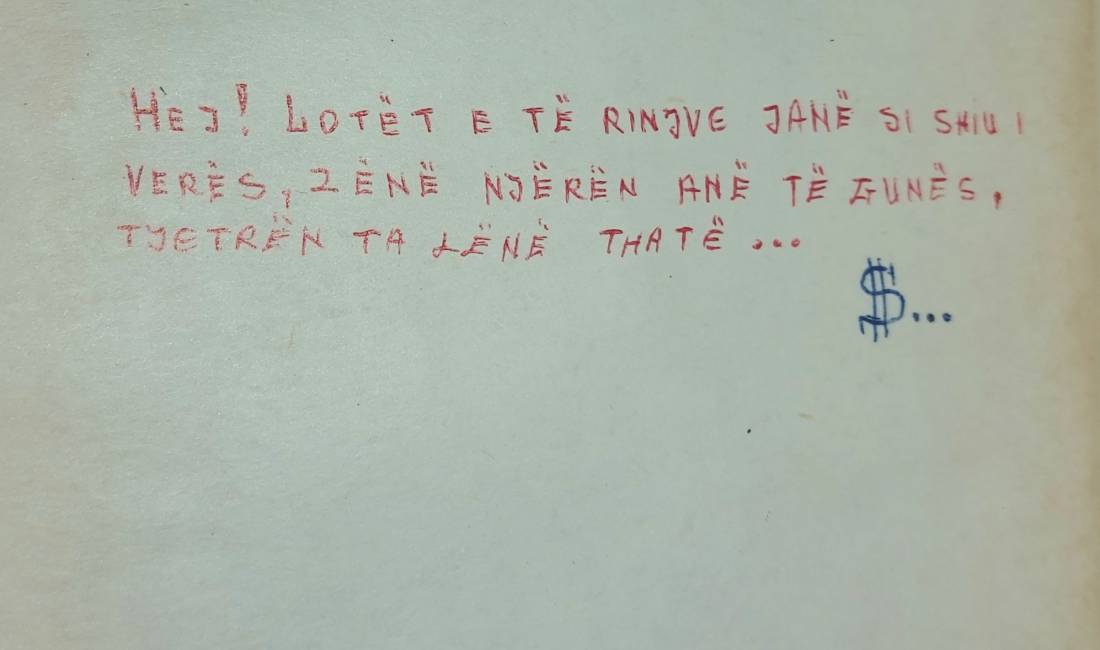 HEJ! LOTËT E TË RINJVE JANË SI SHIU I
VERËS, ZËNË NJËRËN ANË TË GUNËS,
TJETRËN TA LËNË THATË...
$...